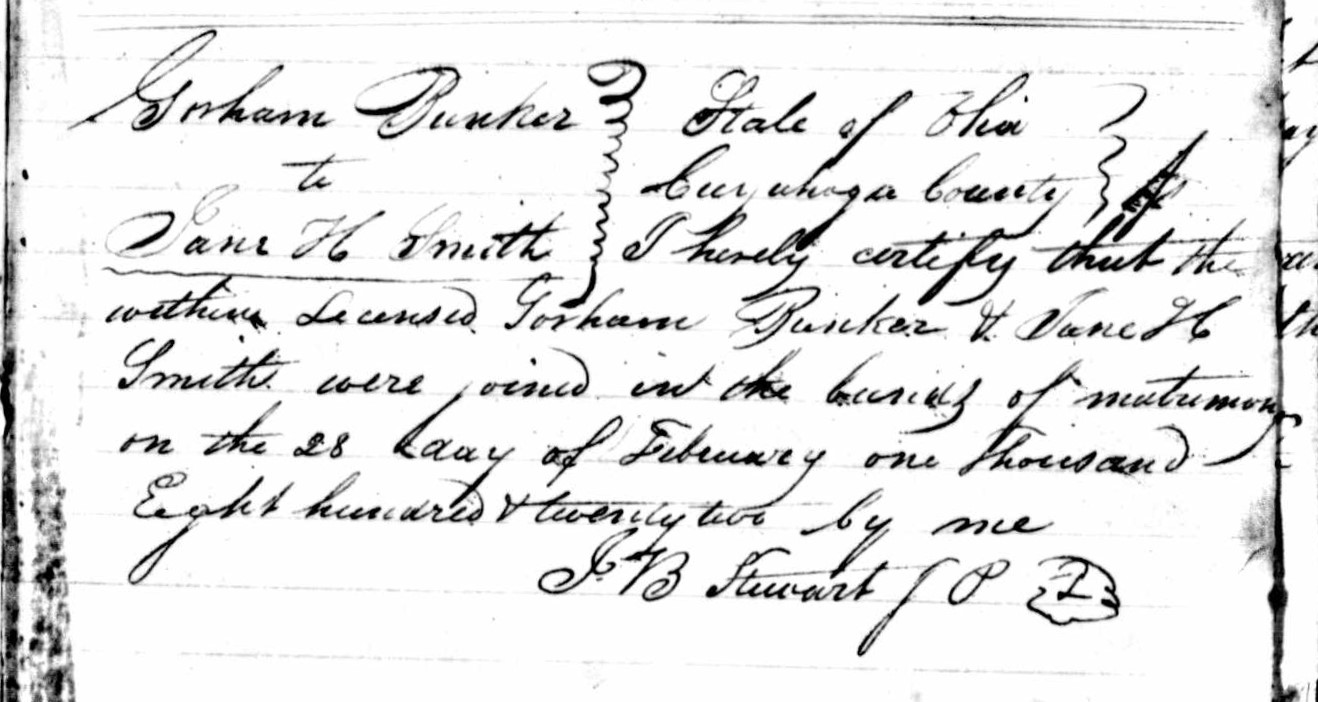 Gorham Bunker } State of Ohio }
to } Cuyahoga County } ss
Jane H Smith } I hereby certify that the
within Licensed Gorham Bunker & Jane H
Smith were joined in the bands of matrimony
on the 28 day of February one Thousand
Eight hundred & twenty two by me
B Stewart J P